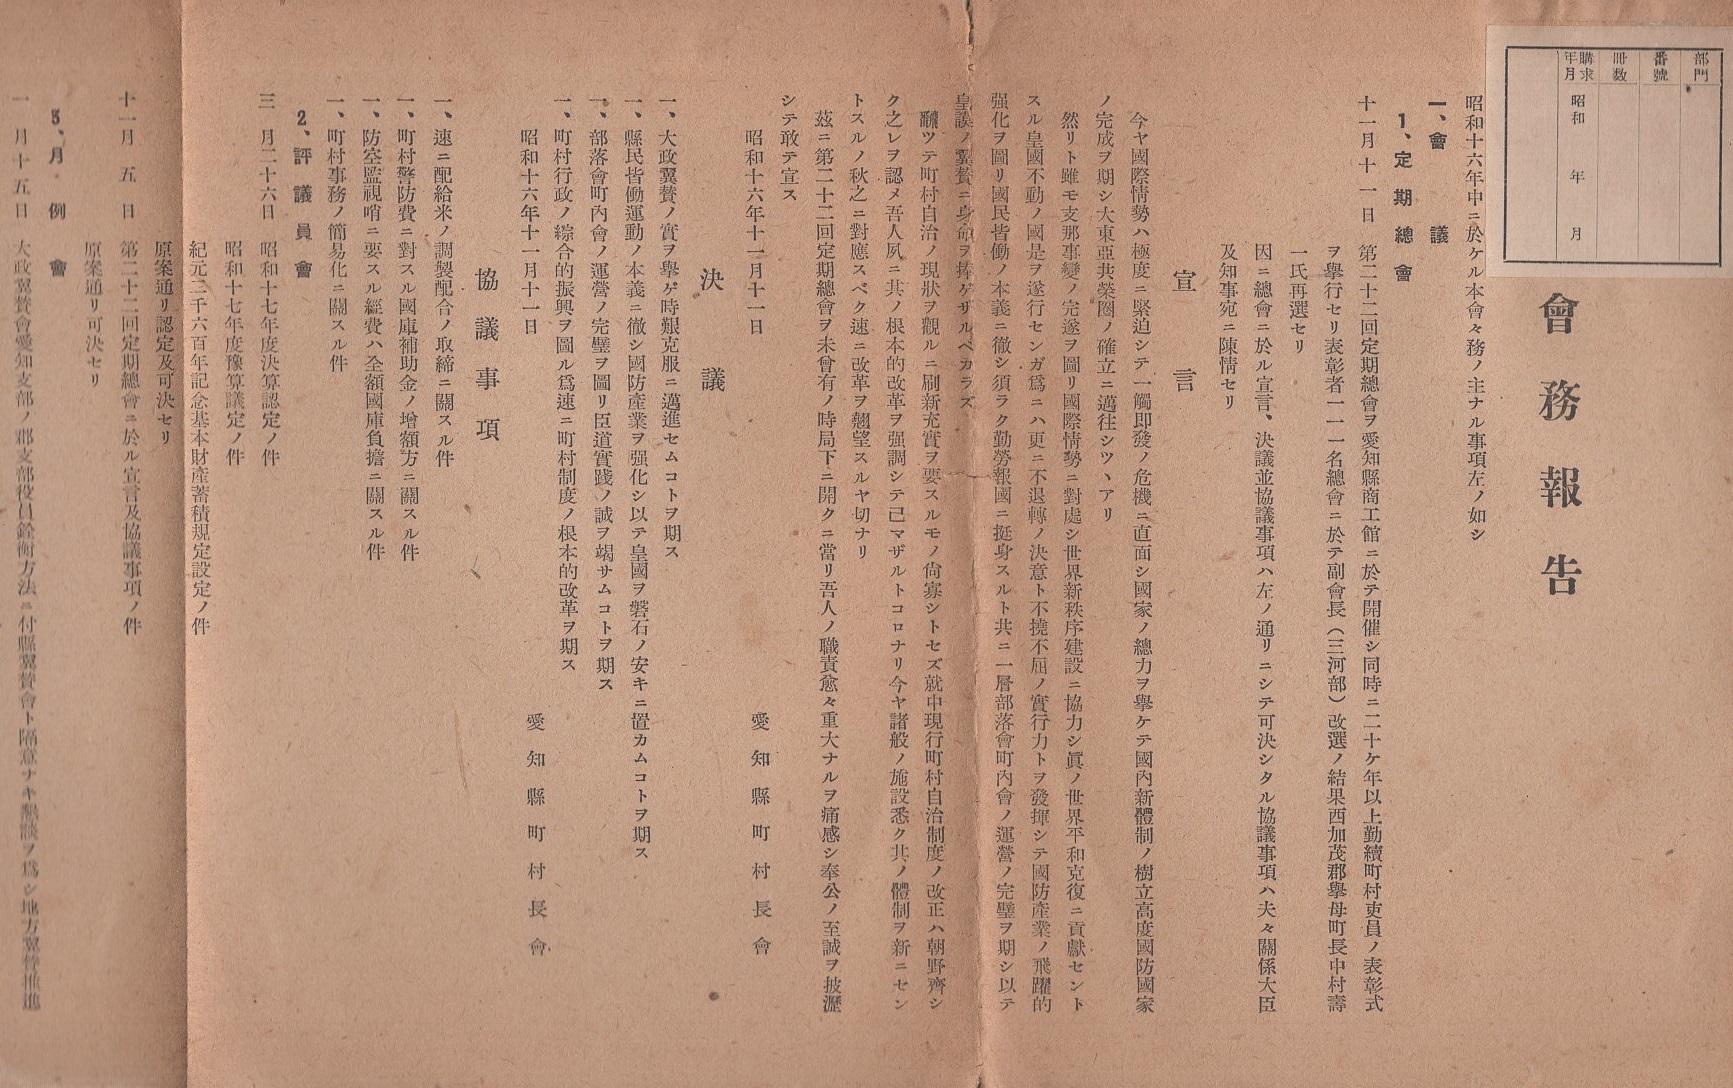 部門
番號
冊数
購求年月
昭和 年 月
會務報告
昭和十六年中ニ於ケル本會々務ノ主ナル事項左ノ如シ
一、會議
1、定期總會
十一月十一日 第二十二回定期總會ヲ愛知縣商工館ニ於テ開催シ同時ニ二十ケ年以上勤續町村吏員ノ表彰式
ヲ擧行セリ表彰者一一一名總會ニ於テ副會長(三河部)改選ノ結果西加茂郡擧母町長中村壽
一氏再選セリ
因ニ總會ニ於ル宣言、決議並協議事項ハ左ノ通リニシテ可決シタル協議事項ハ夫々關係大臣
及知事宛ニ陳情セリ
宣言
今ヤ國際情勢ハ極度ニ緊迫シテ一觸即發ノ危機ニ直面シ國家ノ總力ヲ擧ケテ國內新體制ノ樹立高度國防國家
ノ完成ヲ期シ大東亞共榮圈ノ確立ニ邁往シツヽアリ
然リト雖モ支那事變ノ完遂ヲ圖リ國際情勢ニ對處シ世界新秩序建設ニ協力シ眞ノ世界平和克復ニ貢獻セント
スル皇國不動ノ國是ヲ遂行センガ爲ニハ更ニ不退轉ノ決意ト不撓不屈ノ實行力トヲ發揮シテ國防產業ノ飛躍的
强化ヲ圖リ國民皆働ノ本義ニ徹シ須ラク勤勞報國ニ挺身スルト共ニ一層部落會町內會ノ運營ノ完璧ヲ期シ以テ
皇謨ノ翼賛ニ身命ヲ捧ゲザルベカラズ
飜ツテ町村自治ノ現狀ヲ觀ルニ刷新充實ヲ要スルモノ尙寡シトセズ就中現行町村自治制度ノ改正ハ朝野齊シ
ク之レヲ認メ吾人夙ニ其ノ根本的改革ヲ强調シテ已マザルトコロナリ今ヤ諸般ノ施設悉ク其ノ體制ヲ新ニセン
トスルノ秋之ニ對應スベク速ニ改革ヲ翹望スルヤ切ナリ
茲ニ第二十二回定期總會ヲ未曾有ノ時局下ニ開クニ當リ吾人ノ職責愈々重大ナルヲ痛感シ奉公ノ至誠ヲ披瀝
シテ敢テ宣ス
昭和十六年十一月十一日
愛知縣町村長會
決議
一、大政翼賛ノ實ヲ擧ゲ時艱克服ニ邁進セムコトヲ期ス
一、縣民皆働運動ノ本義ニ徹シ國防產業ヲ强化シ以テ皇國ヲ磐石ノ安キニ置カムコトヲ期ス
一、部落會町內會ノ運營ノ完璧ヲ圖リ臣道實踐ノ誠ヲ竭サムコトヲ期ス
一、町村行政ノ綜合的振興ヲ圖ル爲速ニ町村制度ノ根本的改革ヲ期ス
昭和十六年十一月十一日
愛知縣町村長會
協議事項
一、速ニ配給米ノ調製配合ノ取締ニ關スル件
一、町村警防費ニ對スル國庫補助金ノ增額方ニ關スル件
一、防空監視哨ニ要スル經費ハ全額國庫負擔ニ關スル件
一、町村事務ノ簡易化ニ關スル件
2、評議員會
三月二十六日 昭和十七年度決算認定ノ件
昭和十七年度豫算議定ノ件
紀元二千六百年記念基本財產蓄積規定設定ノ件
原案通リ認定及可決セリ
十一月五日 第二十二回定期總會ニ於ル宣言及協議事項ノ件
原案通リ可決セリ
3、月例會
一月十五日 大政翼賛會愛知支部ノ郡支部役員銓衡方法ニ付縣翼賛會ト隔意ナキ懇談ヲ爲シ地方翼賛推進